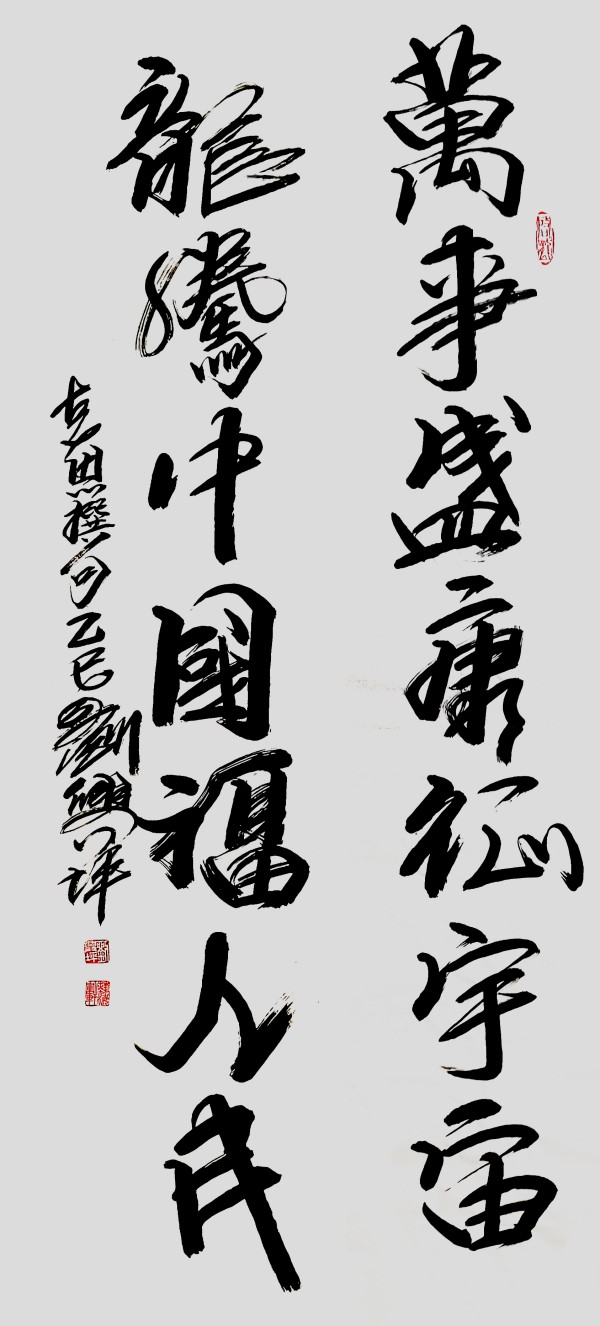 萬事盛康征宇宙
龍騰中國福人民
克思撰句乙巳劉興祥